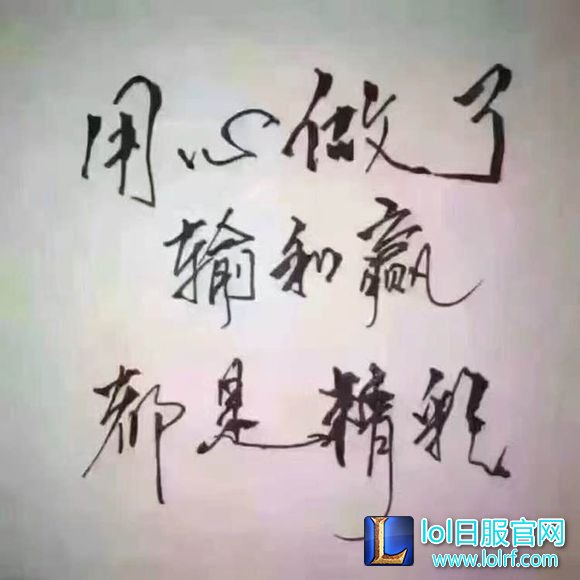 用心做了
输和赢
都是精彩
lol日服官网
www.lolrf.com